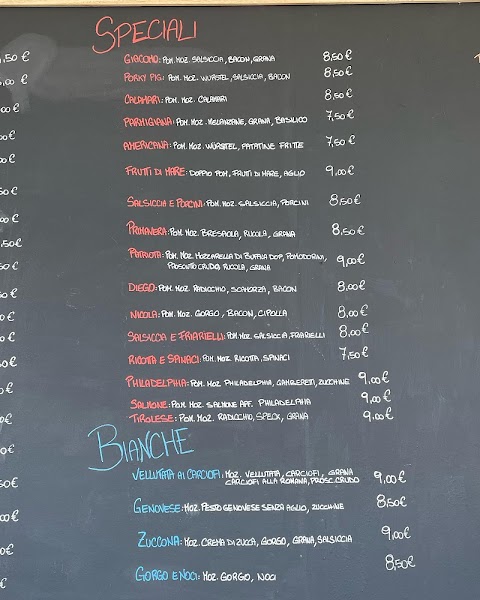 SPECIALI
GIACOMO: POM. MOZ. SALSICCIA, BACON, GRANA 8,50€
PORKY PIG: POM. MOZ. WURSTEL, SALSICCIA, BACON 8,50€
CALAMARI: POM. MOZ. CALAMARI 8,50€
PARMIGIANA: POM. MOZ. MELANZANE, GRANA, BASILICO 7,50€
AMERICANA: POM. MOZ. WÜRSTEL, PATATINE FRITTE 7,50€
FRUTTI DI MARE: DOPPIO POM, FRUTTI DI MARE, AGLIO 9,00€
SALSICCIA E PORCINI: POM. MOZ. SALSICCIA, PORCINI 8,50€
PRIMAVERA: POM. MOZ. BRESAOLA, RUCOLA, GRANA 8,50€
PATRIOTA: POM. MOZ. MOZZARELLA DI BUFALA DOP, POMODORINI,
PROSCIUTTO CRUDO, RUCOLA, GRANA 9,00€
DIEGO: POM. MOZ. RADICCHIO, SCAMORZA, BACON 8,00€
NICOLA: POM. MOZ. GORGO, BACON, CIPOLLA 8,00€
SALSICCIA E FRIARIELLI: POM. MOZ. SALSICCIA, FRIARIELLI 8,00€
RICOTTA E SPINACI: POM. MOZ. RICOTTA, SPINACI 7,50€
PHILADELPHIA: POM. MOZ. PHILADELPHIA, GAMBERETTI, ZUCCHINE 9,00€
SALMONE: POM. MOZ. SALMONE AFF. PHILADELPHIA 9,00€
TIROLESE: POM. MOZ. RADICCHIO, SPECK, GRANA 9,00€
BIANCHE
VELLUTATA AI CARCIOFI: MOZ. VELLUTATA, CARCIOFI, GRANA
CARCIOFI ALLA ROMANA, PROSC. CRUDO 9,00€
GENOVESE: MOZ. PESTO GENOVESE SENZA AGLIO, ZUCCHINE 8,50€
ZUCCONA: MOZ. CREMA DI ZUCCA, GORGO, GRANA, SALSICCIA 9,00€
GORGO E NOCI: MOZ. GORGO, NOCI 8,50€